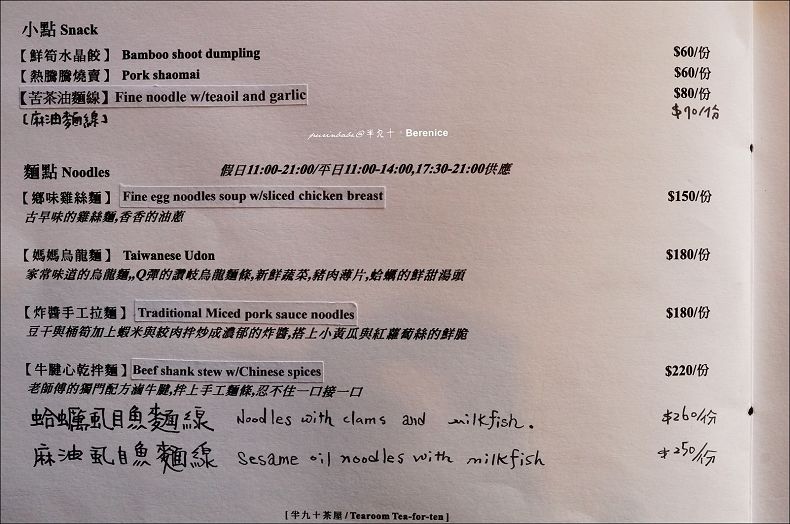 小點 Snack
【鮮筍水晶餃】 Bamboo shoot dumpling $60/份
【熱騰騰燒賣】 Pork shaomai $60/份
【苦茶油麵線】 Fine noodle w/teaoil and garlic $80/份
【麻油麵線】 $70/份
purinbabe@半九十‧Berenice
麵點 Noodles 假日11:00-21:00/平日11:00-14:00,17:30-21:00供應
【鄉味雞絲麵】 Fine egg noodles soup w/sliced chicken breast $150/份
古早味的雞絲麵,香香的油蔥
【媽媽烏龍麵】 Taiwanese Udon $180/份
家常味道的烏龍麵,,Q彈的讚岐烏龍麵條,新鮮蔬菜,豬肉薄片,蛤蠣的鮮甜湯頭
【炸醬手工拉麵】 Traditional Miced pork sauce noodles $180/份
豆干與桶筍加上蝦米與絞肉拌炒成濃郁的炸醬,搭上小黃瓜與紅蘿蔔絲的鮮脆
【牛腱心乾拌麵】 Beef shank stew w/Chinese spices $220/份
老師傅的獨門配方滷牛腱,拌上手工麵條,忍不住一口接一口
蛤蠣虱目魚麵線 Noodles with clams and milkfish. $260/份
麻油虱目魚麵線 Sesame oil noodles with milkfish $250/份
[半九十茶屋/Tearoom Tea-for-ten]